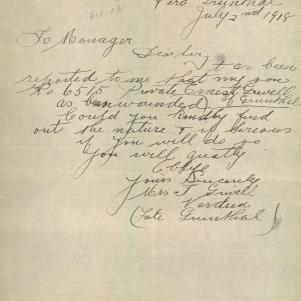 Grunthal
July 2nd 1918
To Manager
Dear Sir,
It as been
reported to me that my son
No 6515 Private Ernest
as ban wounded of Grunthal
Could you kindly find
out the nature & if serious
if you will do so
you will greatly
Yours Sincerely
Mrs J
Verdun
(Late Grunthal)